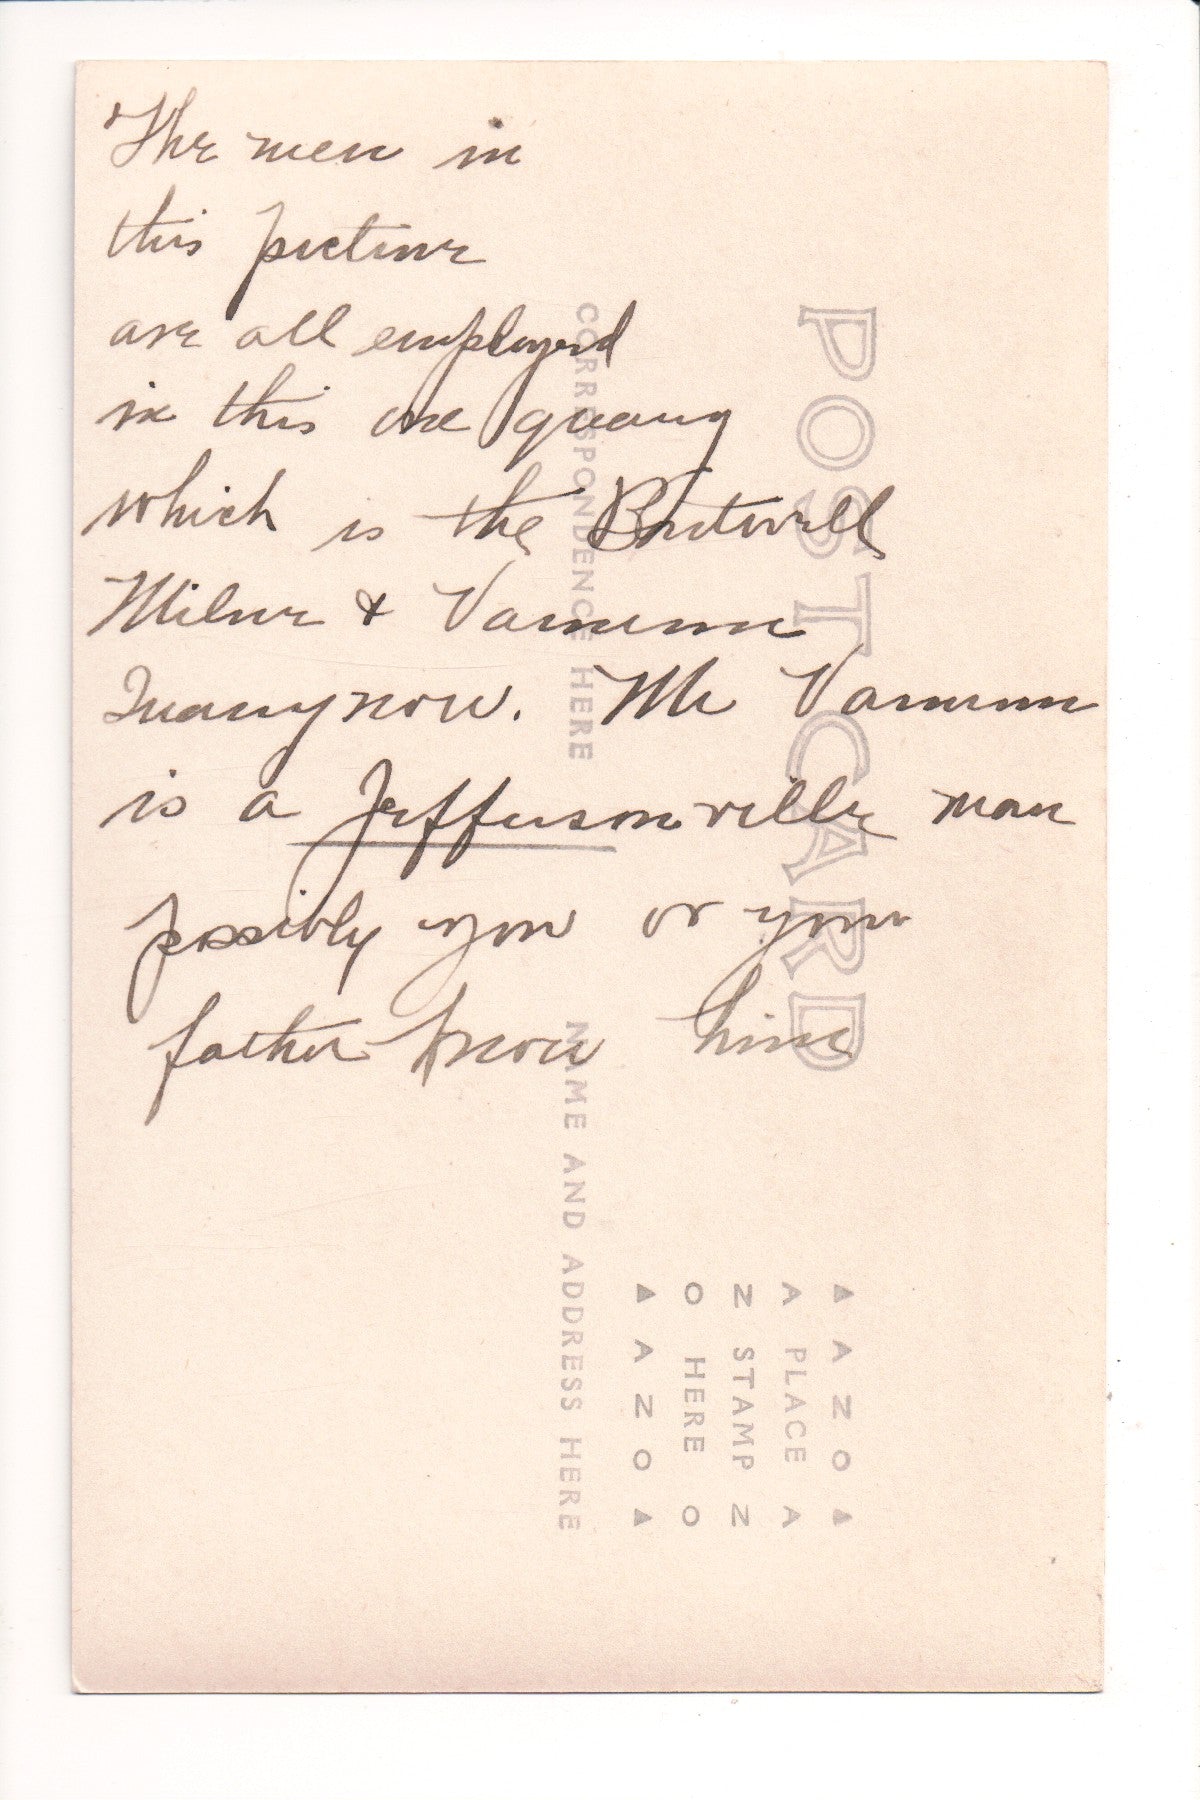 The men in
this picture
are all employed
in this one quarry
which is the Boutwell
Milne & Varnum
Quarry now. Mr Varnum
is a Jeffersonville man
possibly you or your
father know him
POST CARD
CORRESPONDENCE HERE
NAME AND ADDRESS HERE
▲ A Z O ▲
A PLACE A
Z STAMP Z
O HERE O
▲ A Z O ▲